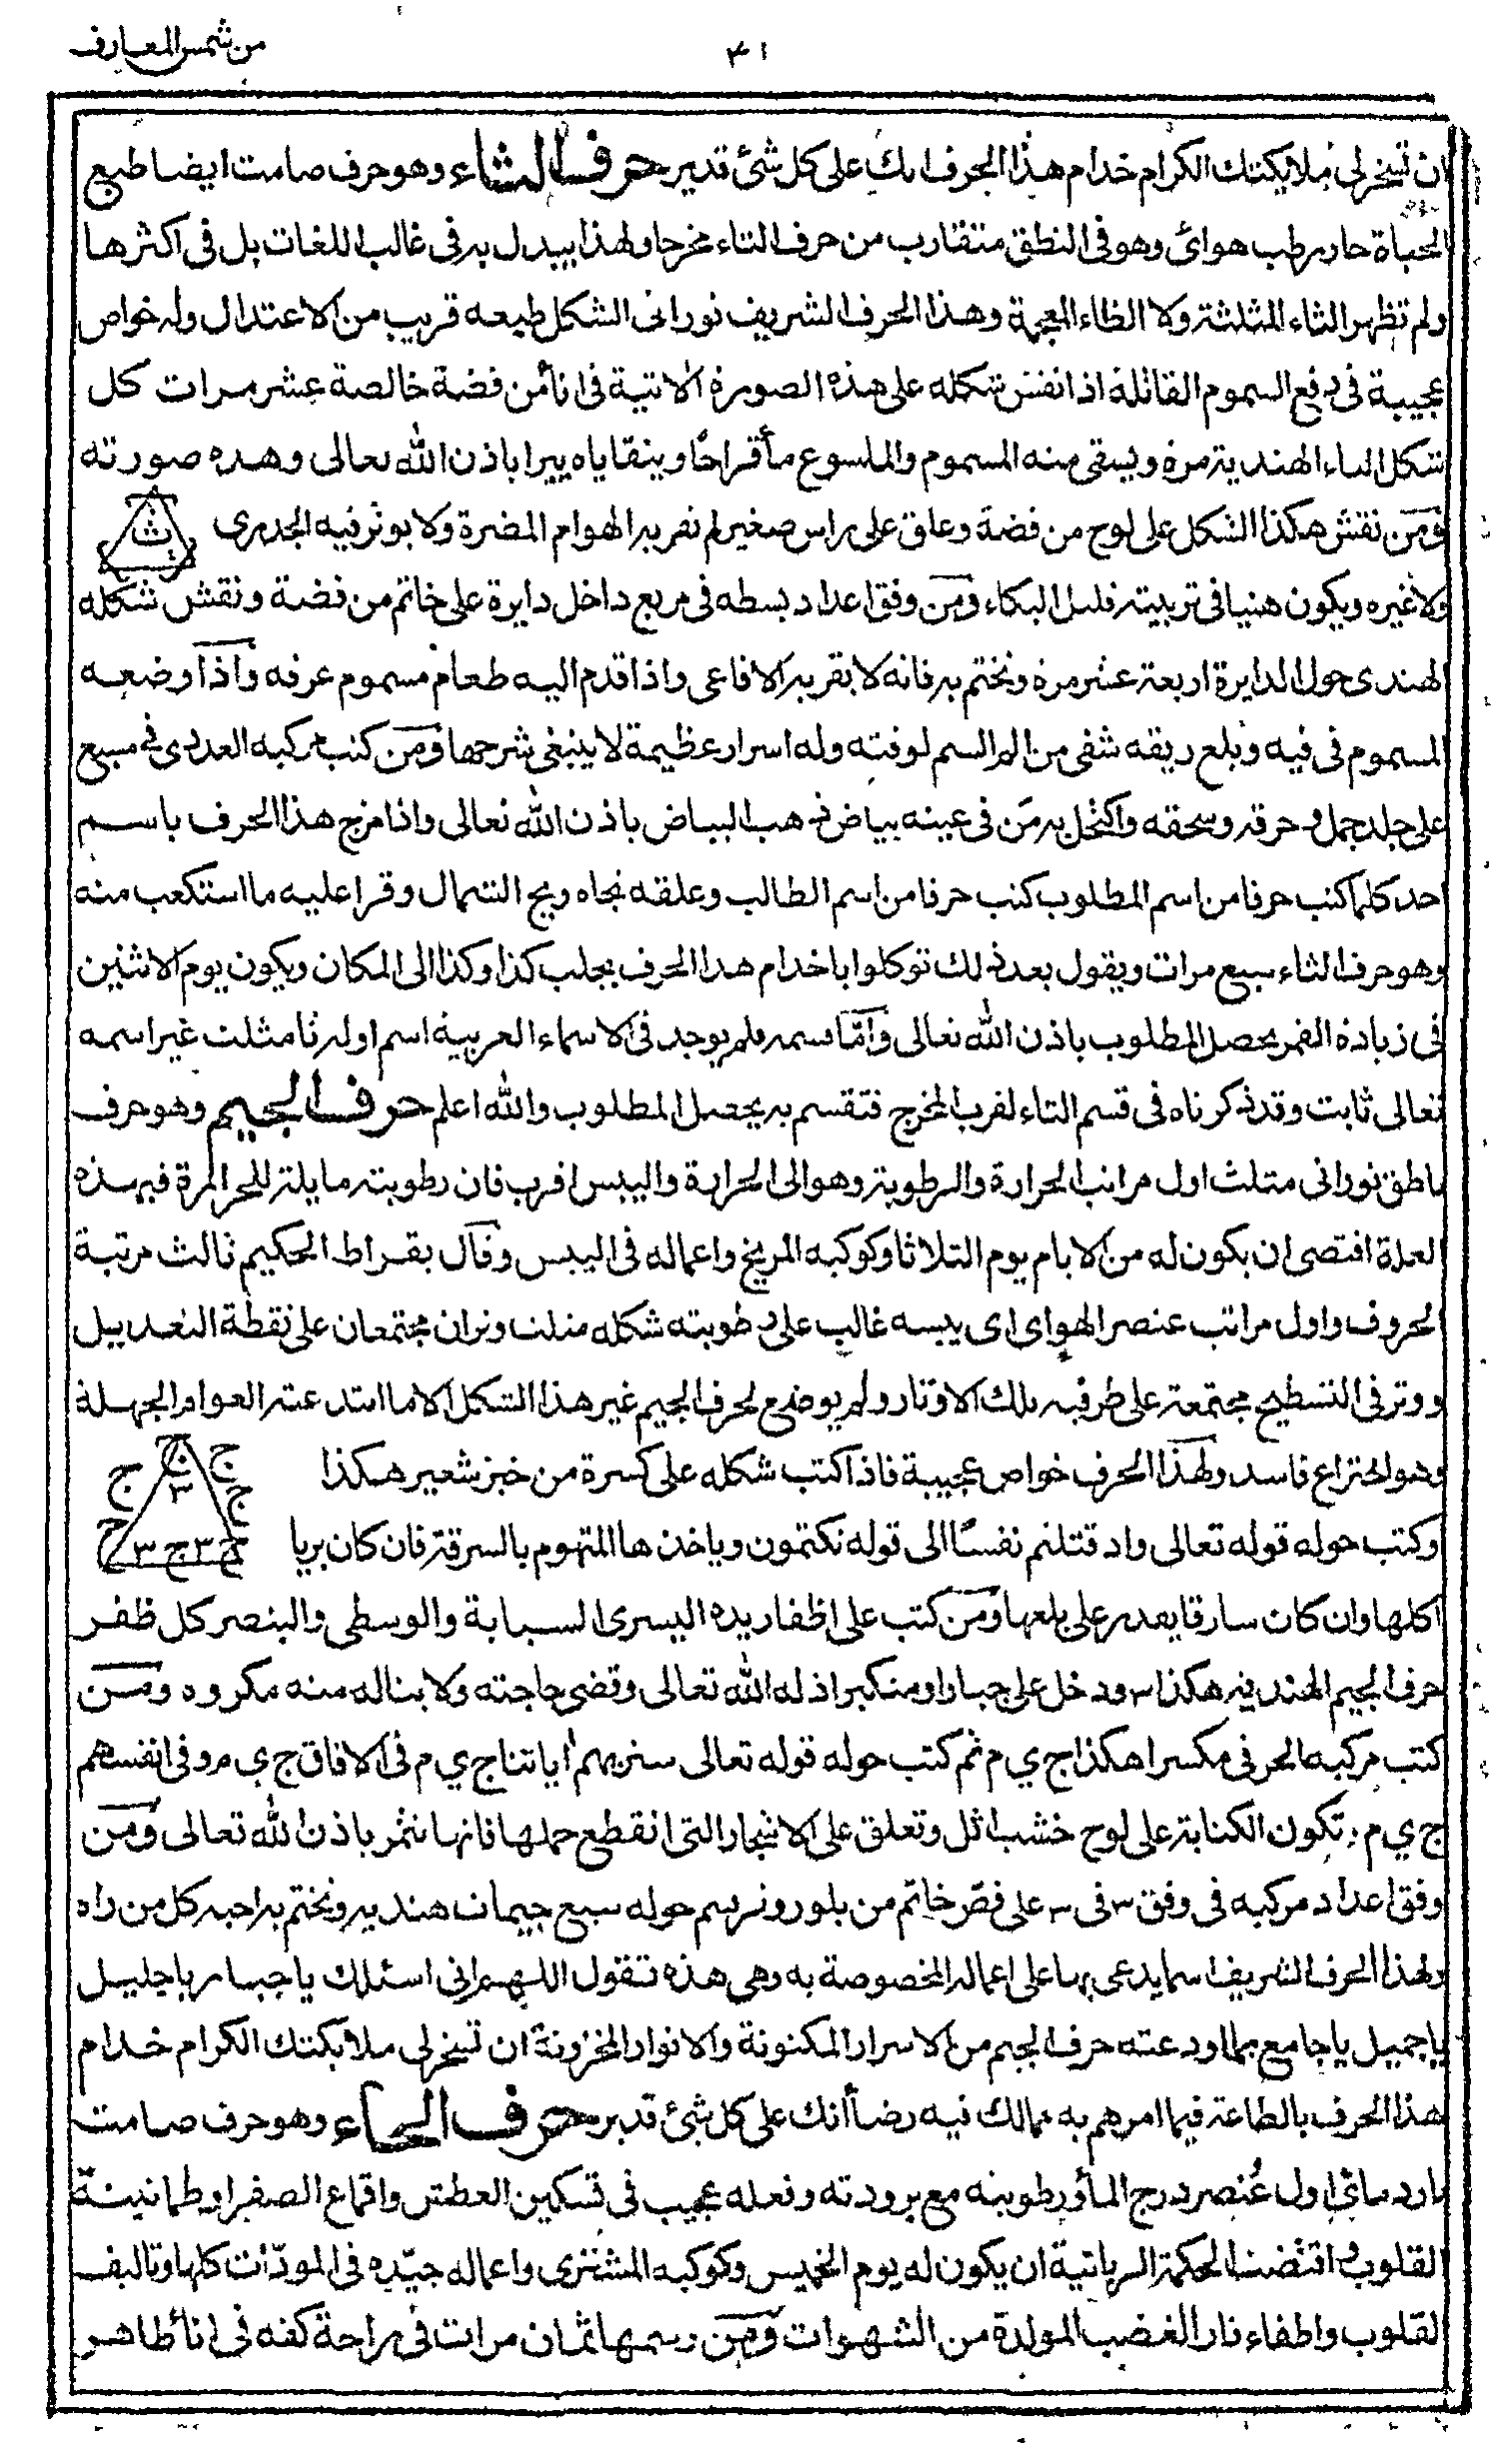 من شمس المعارف
٣١
ان تسخر لى ملايكتك الكرام خدام هذا الحرف انك على كل شئ قدير حرف الثاء وهو حرف صامت ايضا طبع
الحياة حار رطب هوائ وهو فى النطق متقارب من حرف التاء مخرجا ولهذا يبدل به فى غالب اللغات بل فى اكثرها
ولم تظهر الثاء المثلثة ولا الظاء المعجمة وهذا الحرف الشريف نورانى الشكل طبعه قريب من الاعتدال وله خواص
عجيبة فى دفع السموم القاتلة اذا نقش شكله على هذه الصورة الاتية فى اناء من فضة خالصة عشر مرات كل
شكل الثاء الهندية مرة ويسقى منه المسموم والملسوع ماء قراحا ويتقاياه يبرا باذن الله تعالى وهذه صورته
ومن نقش هكذا الشكل على لوح من فضة وعلق على راس صغير لم تقربه الهوام المضرة ولا يوثر فيه الجدرى
ث
ولا غيره ويكون هنيا فى تربيته قليل البكاء ومن وفق اعداد بسطه فى مربع داخل دايرة على خاتم من فضة ونقش شكله
الهندى حول الدايرة اربعة عشر مرة وتختم به فانه لا تقربه الافاعى واذا قدم اليه طعام مسموم عرفه واذا وضعه
المسموم فى فيه وبلع ريقه شفى من الم السم لوقته وله اسرار عظيمة لا ينبغى شرحها ومن كتب مركبه العددى فى مسبع
على جلد جمل وحرقه وسحقه واكتحل به من فى عينه بياض ذهب البياض باذن الله تعالى واذا مزج هذا الحرف باسم
احد كلما كتب حرفا من اسم المطلوب كتب حرفا من اسم الطالب وعلقه تجاه ريح الشمال وقرا عليه ما استكعب منه
وهو حرف الثاء سبع مرات ويقول بعد ذلك توكلوا يا خدام هذا الحرف بجلب كذا وكذا الى المكان ويكون يوم الاثنين
فى زيادة القمر يحصل المطلوب باذن الله تعالى واما قسمه فلم يوجد فى الاسماء العربية اسم اوله ثا مثلث غير اسمه
تعالى ثابت وقد ذكرناه فى قسم التاء لقرب المخرج فتقسم به يحصل المطلوب والله اعلم حرف الجيم وهو حرف
ناطق نورانى مثلث اول مراتب الحرارة والرطوبة وهو الى الحرارة واليبس اقرب فان رطوبته مايلة للحر المرة فبهذه
العلة اقتضى ان يكون له من الايام يوم الثلاثا وكوكبه المريخ واعماله فى اليبس وقال بقراط الحكيم ثالث مرتبة
الحروف واول مراتب عنصر الهواى اى يبسه غالب على رطوبته شكله مثلث وتران مجتمعان على نقطة التعديل
ووتر فى التسطيح مجتمعة على طرفيه تلك الاوتار ولم يوضع لحرف الجيم غير هذا الشكل الا ما ابتدعته العوام الجهلة
وهو اختراع فاسد ولهذا الحرف خواص عجيبة فاذا كتب شكله على كسرة من خبز شعير هكذا
ج ج ج ج ٣
وكتب حوله قوله تعالى واذ قتلتم نفسا الى قوله تكتمون وياخذها المتهوم بالسرقة فان كان بريا
ج ٣ ج ٣ ج
اكلها وان كان سارقا يقدر على بلعها ومن كتب على اظفار يده اليسرى السبابة والوسطى والبنصر كل ظفر
حرف الجيم الهندية هكذا ٣ ودخل على جبار او متكبر اذله الله تعالى وقضى حاجته ولا يناله منه مكروه ومن
كتب مركبه الحرفى مكسرا هكذا ج ي م ثم كتب حوله قوله تعالى سنريهم اياتنا ج ي م فى الافاق ج ي م وفى انفسهم
ج ي م وتكون الكتابة على لوح خشب اثل وتعلق على الاشجار التى انقطع حملها فانها تثمر باذن الله تعالى ومن
وفق اعداد مركبه فى وفق ٣ فى ٣ على فص خاتم من بلور ورسم حوله سبع جيمات هنديه وتختم به احبه كل من راه
ولهذا الحرف الشريف اسما يدعى بها على اعماله المخصوصة به وهى هذه تقول اللهم انى اسئلك يا جبار يا جليل
يا جميل يا جامع بما اودعته حرف الجيم من الاسرار المكنونة والانوار المخزونة ان تسخر لى ملايكتك الكرام خدام
هذا الحرف بالطاعة فيما امرهم به مما لك فيه رضا أنك على كل شئ قدير حرف الحاء وهو حرف صامت
بارد مائى اول عنصر درج الماء ورطوبته مع برودته وفعله عجيب فى تسكين العطش واقماع الصفرا وطمانينة
القلوب واقتضت الحكمة الربانية ان يكون له يوم الخميس وكوكبه المشترى واعماله جيده فى المودات كلها وتاليف
القلوب واطفاء نار الغضب المولدة من الشهوات ومن رسمها ثمان مرات فى راحة كفه فى اناء طاهر